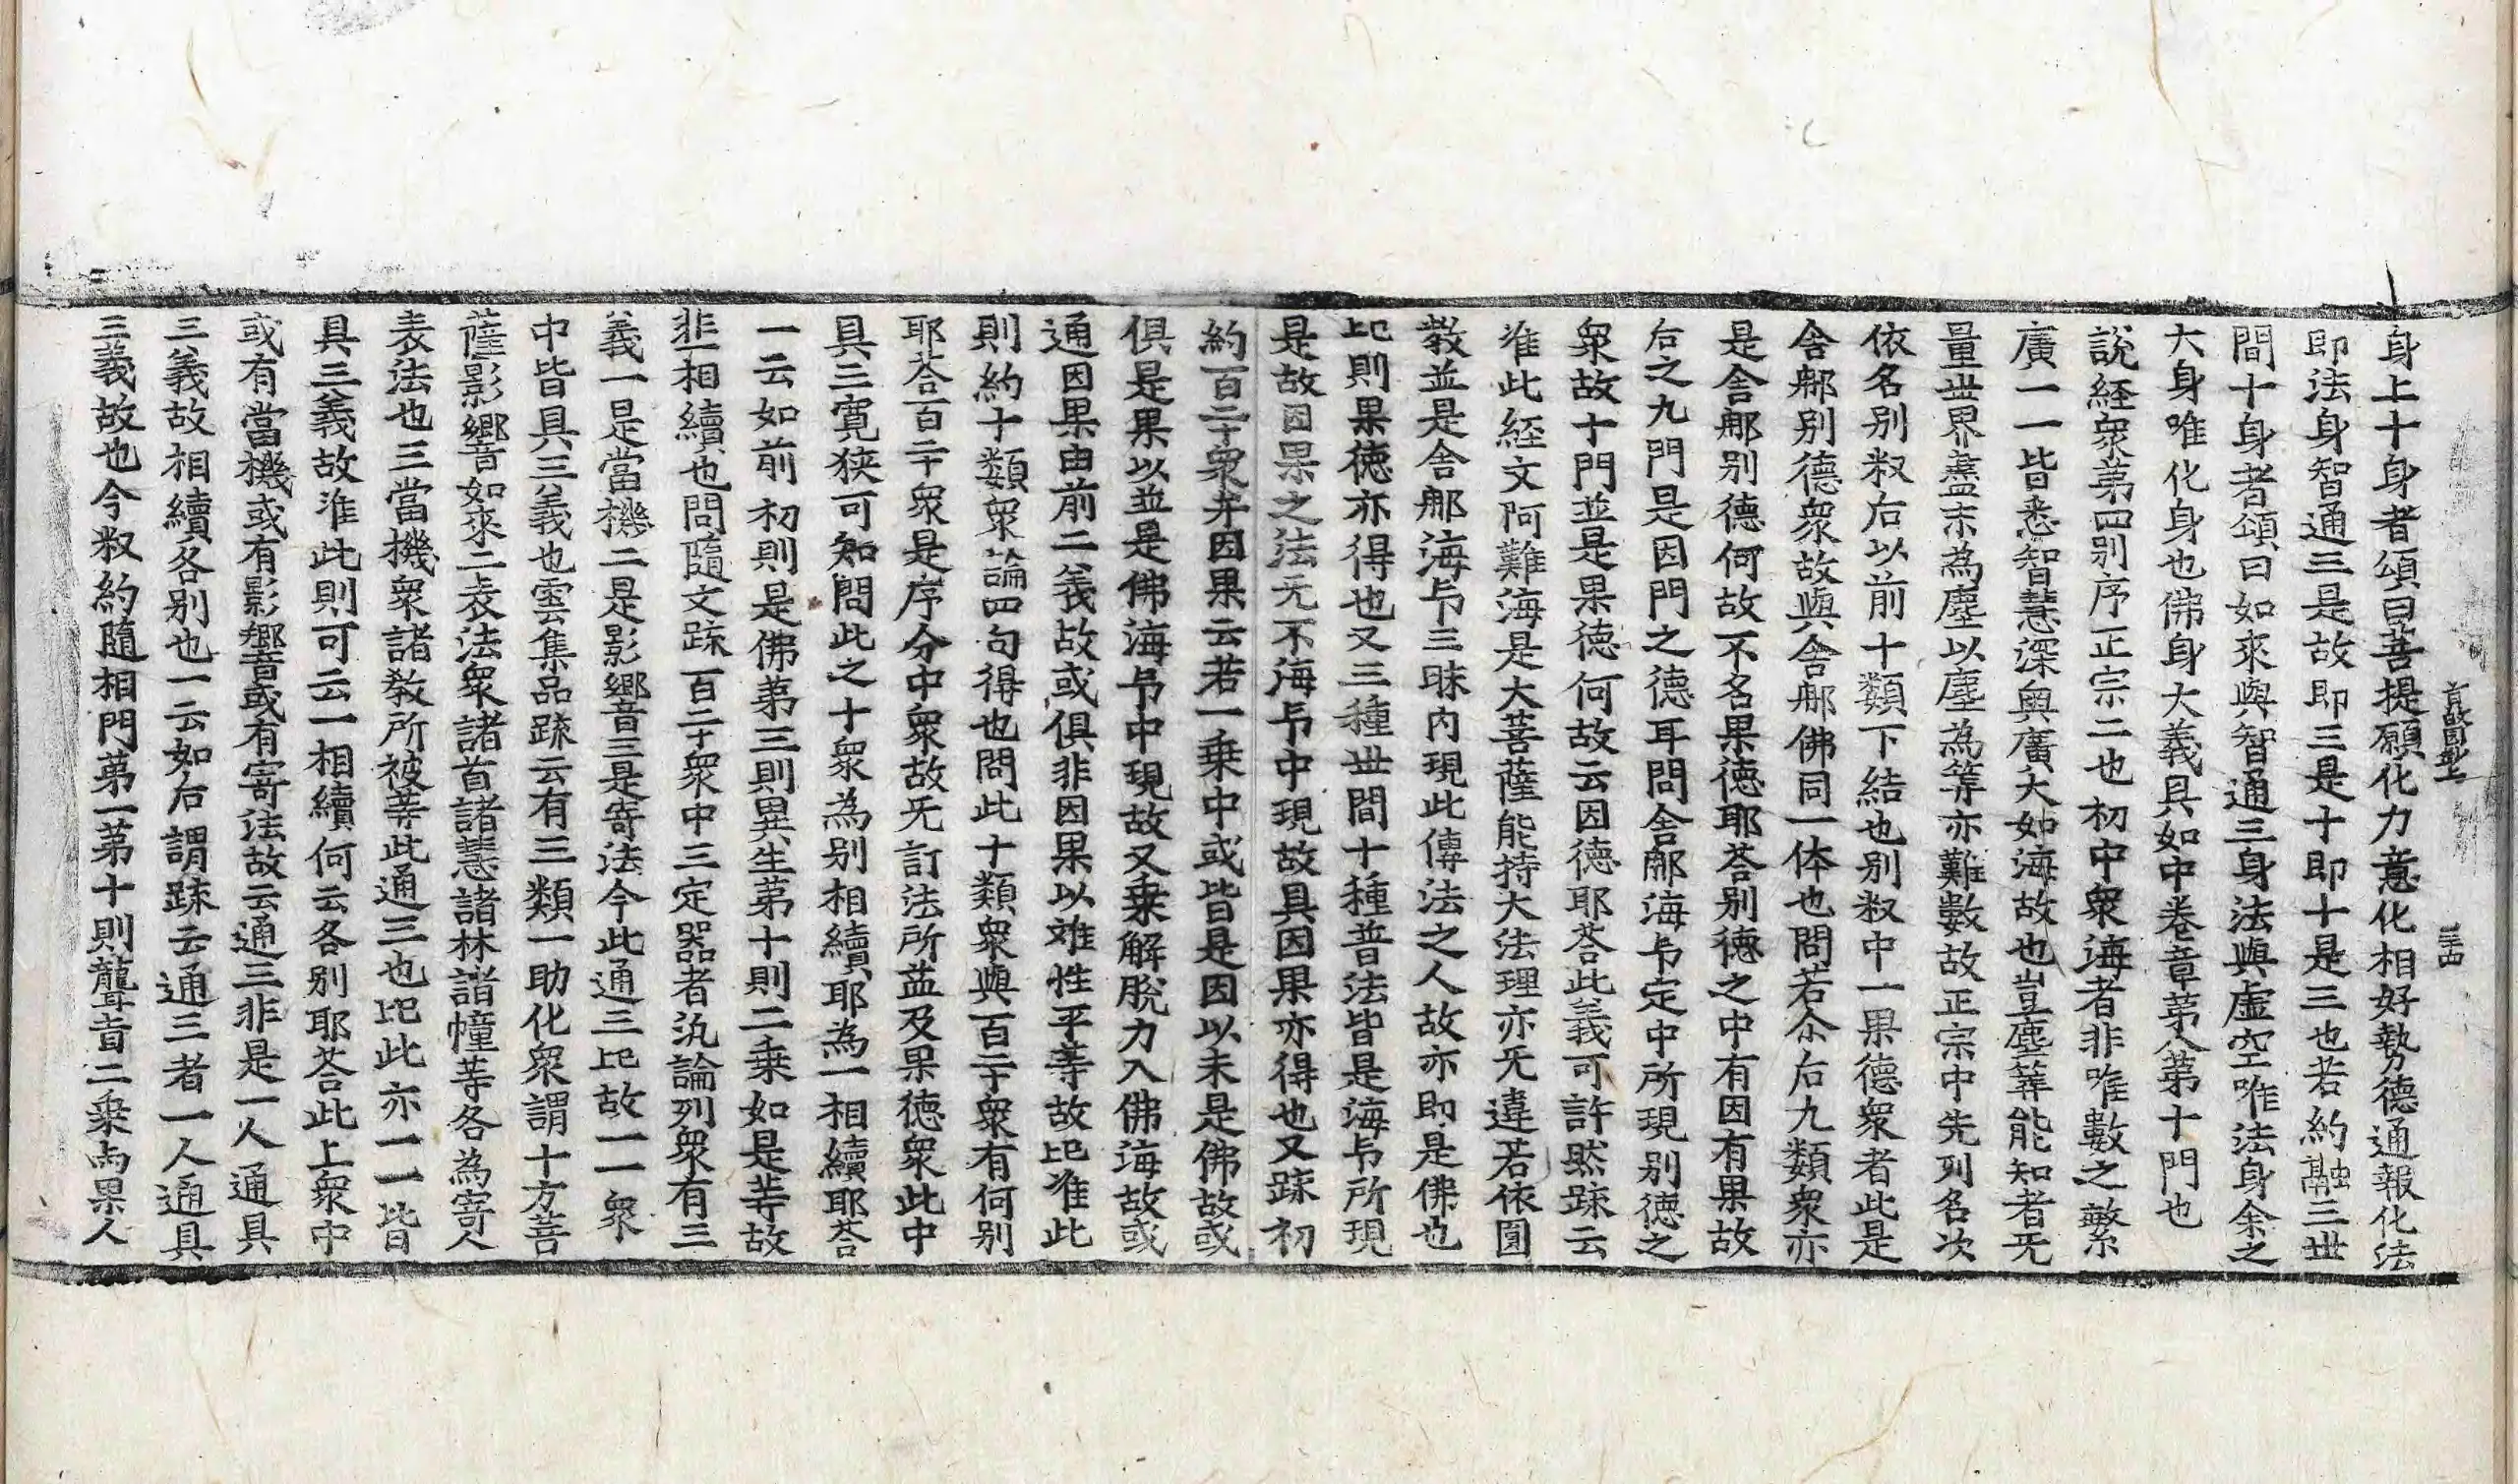 身上十身者頌曰菩提願化力意化相好勢德通報化法
即法身智通三是故即三是十即十是三也若約融三世
間十身者頌曰如來與智通三身法與虛空唯法身余之
大身唯化身也佛身大義具如中卷章第八第十門也
說經衆第四別序正宗二也初中衆海者非唯數之繁
廣一一皆悉智慧深奧廣大如海故也豈塵筭能知者无
量世界盡末為塵以塵為等亦難數故正宗中先列名次
依名別㪅后以前十類下結也別㪅中一果德衆者此是
舍那別德衆故與舍那佛同一体也問若尒后九類衆亦
是舍那別德何故不名果德耶荅別德之中有因有果故
后之九門是因門之德耳問舍那海卐定中所現別德之
衆故十門並是果德何故云因德耶荅此義可許然䟽云
准此經文阿難海是大菩薩能持大法理亦无違若依圓
教並是舍那海卐三昧內現此傳法之人故亦即是佛也
比則果德亦得也又三種世間十種普法皆是海卐所現
是故因果之法无不海卐中現故具因果亦得也又䟽初
約百二十衆弁因果云若一乗中或皆是因以未是佛故或
俱是果以並是佛海卐中現故又乗解脫力入佛海故或
通因果由前二義故或俱非因果以难性平等故比准此
則約十類衆論四句得也問此十類衆與百二十衆有何別
耶荅百二十衆是序分中衆故无訂法所益及果德衆此中
具三寬狹可知問此之十衆為別相續耶為一相續耶荅
一云如前初則是佛第三則異生第十則二乗如是䒭故
非一相續也問隨文䟽百二十衆中三定器者汎論列衆有三
義一是當機二是影響三是寄法今此通三比故一一衆
中皆具三義也雲集品䟽云有三類一助化衆謂十方菩
薩影響如來二表法衆諸首諸慧諸林諸幢䒭各為寄人
表法也三當機衆諸教所被䒭此通三也比此亦一一皆
具三義故准此則可云一相續何云各別耶荅此上衆中
或有當機或有影響或有寄法故云通三非是一人通具
三義故相續各別也一云如后謂䟽云通三者一人通具
三義故也今㪅約隨相門第一第十則聾盲二衆両果人